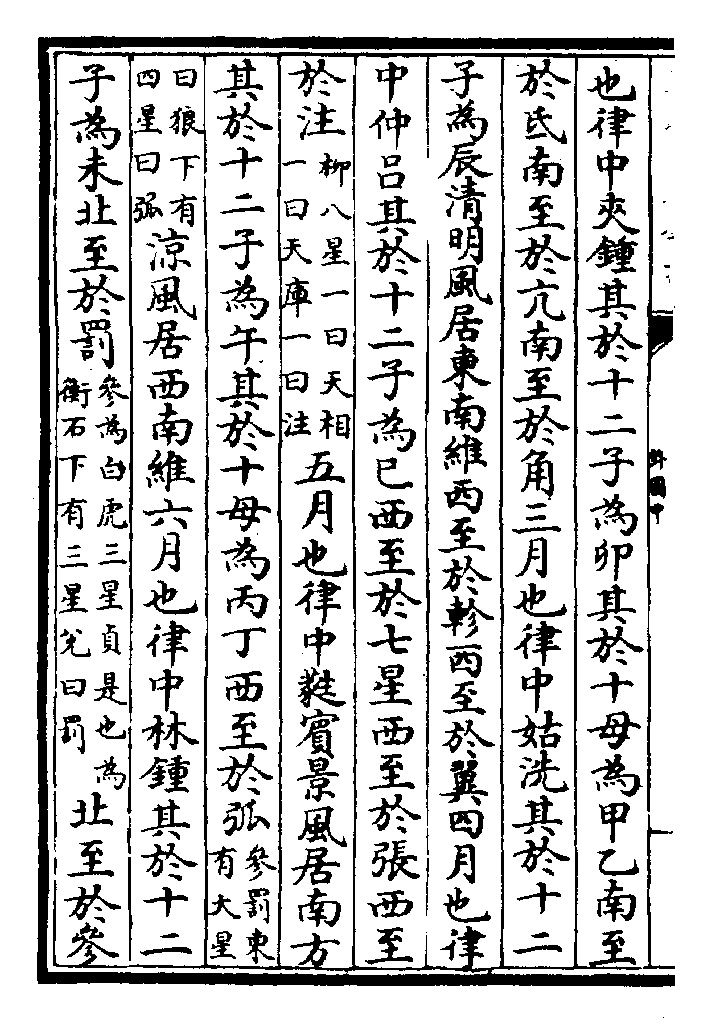 也律中夾鍾其於十二子為卯其於十母為甲乙南至
於氐南至於亢南至於角三月也律中姑洗其於十二
子為辰清明風居東南維西至於軫西至於翼四月也律
中仲呂其於十二子為巳西至於七星西至於張西至
於注柳八星一曰天相一曰天庫一曰注五月也律中蕤賓景風居南方
其於十二子為午其於十母為丙丁西至於弧參罰東有大星
曰狼下有四星曰弧涼風居西南維六月也律中林鍾其於十二
子為未北至於罰參為白虎三星貞是也為衡石下有三星兊曰罰北至於參